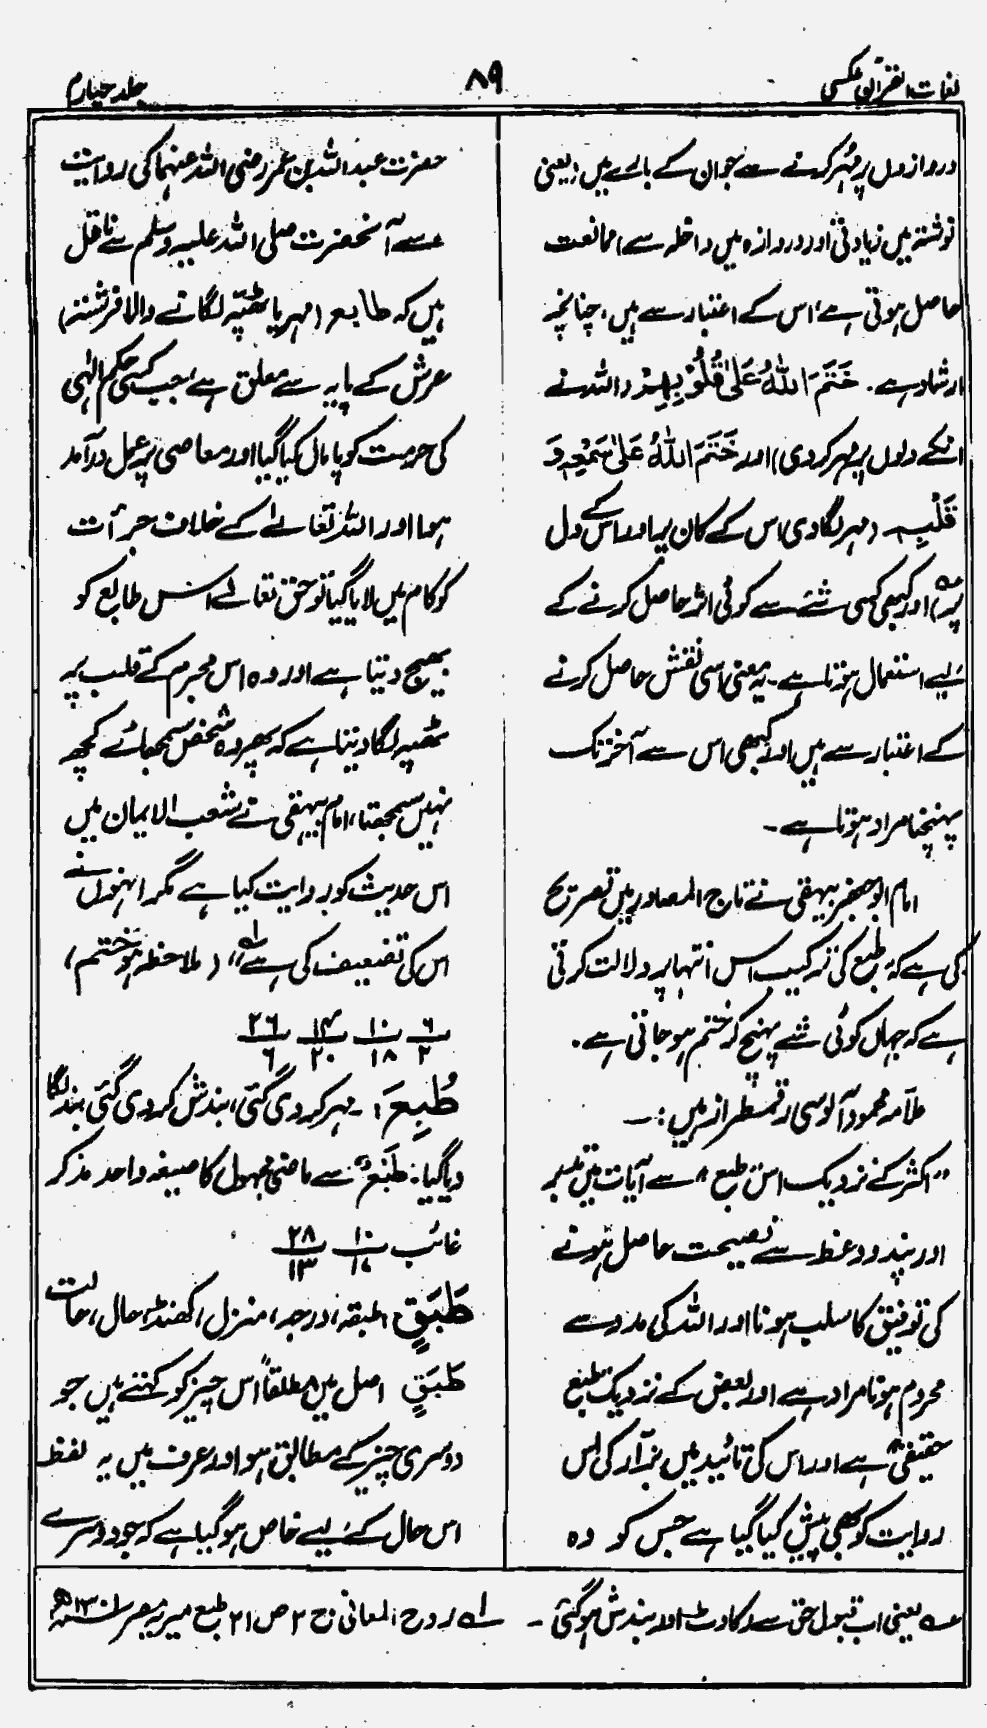 لغات القرآن عکسی
۸۹
جلد چہارم
دروازوں پر مہر کرنے سے جو ان کے بارے میں (یعنی
نوشتہ میں زیادتی اور دروازہ میں داخلہ سے) ممانعت
حاصل ہوتی ہے، اس کے اعتبار سے ہیں، چنانچہ
ارشاد ہے۔ خَتَمَ اللہُ عَلیٰ قُلُوْبِہِمْ (اللہ نے
انکے دلوں پر مہر کر دی) اور خَتَمَ اللہُ عَلیٰ سَمْعِہٖ وَ
قَلْبِہٖ (مہر لگا دی اس کے کان پر اور اس کے دل
پر)عہ اور کبھی کسی شئے سے کوئی اثر حاصل کرنے کے
لیے استعمال ہوتا ہے۔ یہ معنی اسی نقش حاصل کرنے
کے اعتبار سے ہیں اور کبھی اس سے آخر تک
پہنچنا مراد ہوتا ہے۔
امام ابو جعفر بیہقی نے تاج المصادر میں تصریح
کی ہے کہ طبع کی ترکیب اس انتہا پر دلالت کرتی
ہے کہ جہاں کوئی شئے پہنچ کر ختم ہو جاتی ہے۔
علامہ محمود آلوسی رقمطراز ہیں:۔
"اکثر کے نزدیک اس طبع" سے آیات میں تدبر
اور پند و وعظ سے نصیحت حاصل ہونے
کی توفیق کا سلب ہونا اور اللہ کی مدد سے
محروم ہونا مراد ہے اور بعض کے نزدیک طبع
حقیقی ہے اور اس کی تائید میں بزار کی اس
روایت کو بھی پیش کیا گیا ہے جس کو وہ
حضرت عبداللہ بن عمر رضی اللہ عنہما کی روایت
سے آنحضرت صلی اللہ علیہ وسلم سے ناقل
ہیں کہ طابع (مہر یا ٹھپّہ لگانے والا فرشتہ)
عرش کے پایہ سے معلق ہے، جب کسی حکم الٰہی
کی حرمت کو پامال کیا گیا اور معاصی پر عمل درآمد
ہوا اور اللہ تعالےٰ کے خلاف جرأت
کو کام میں لایا گیا تو حق تعالےٰ اس طابع کو
بھیج دیتا ہے اور وہ اس مجرم کے قلب پر
ٹھپہ لگا دیتا ہے کہ پھر وہ شخص سمجھائے کچھ
نہیں سمجھتا، امام بیہقی نے شعب الایمان میں
اس حدیث کو روایت کیا ہے مگر انہوں نے
اس کی تضعیف کی ہے"لہ (ملاحظہ ہو ختم)
۶/۲ ۱۰/۱۸ ۱۴/۲۰ ۲۶/۶
طُبِعَ: ۔ مہر کر دی گئی، بندش کر دی گئی، بند لگا
دیا گیا: طَبْعٌ سے ماضی مجہول کا صیغہ واحد مذکر
غائب ۱۰/۱۷ ۲۸/۱۳
طَبَقٍ: طبقہ، درجہ، منزل، کھنڈ، حال، حالت
طَبَقٍ اصل میں مطلقاً اس چیز کو کہتے ہیں جو
دوسری چیز کے مطابق ہو اور عرف میں یہ لفظ
اس حال کے لیے خاص ہو گیا ہے کہ جو دوسرے
عہ یعنی اب قبول حق سے رکاوٹ اور بندش ہو گئی ۔ لہ روح المعانی ج ۲ ص ۲۱ طبع میریہ مصر ۱۳۰۱ھ